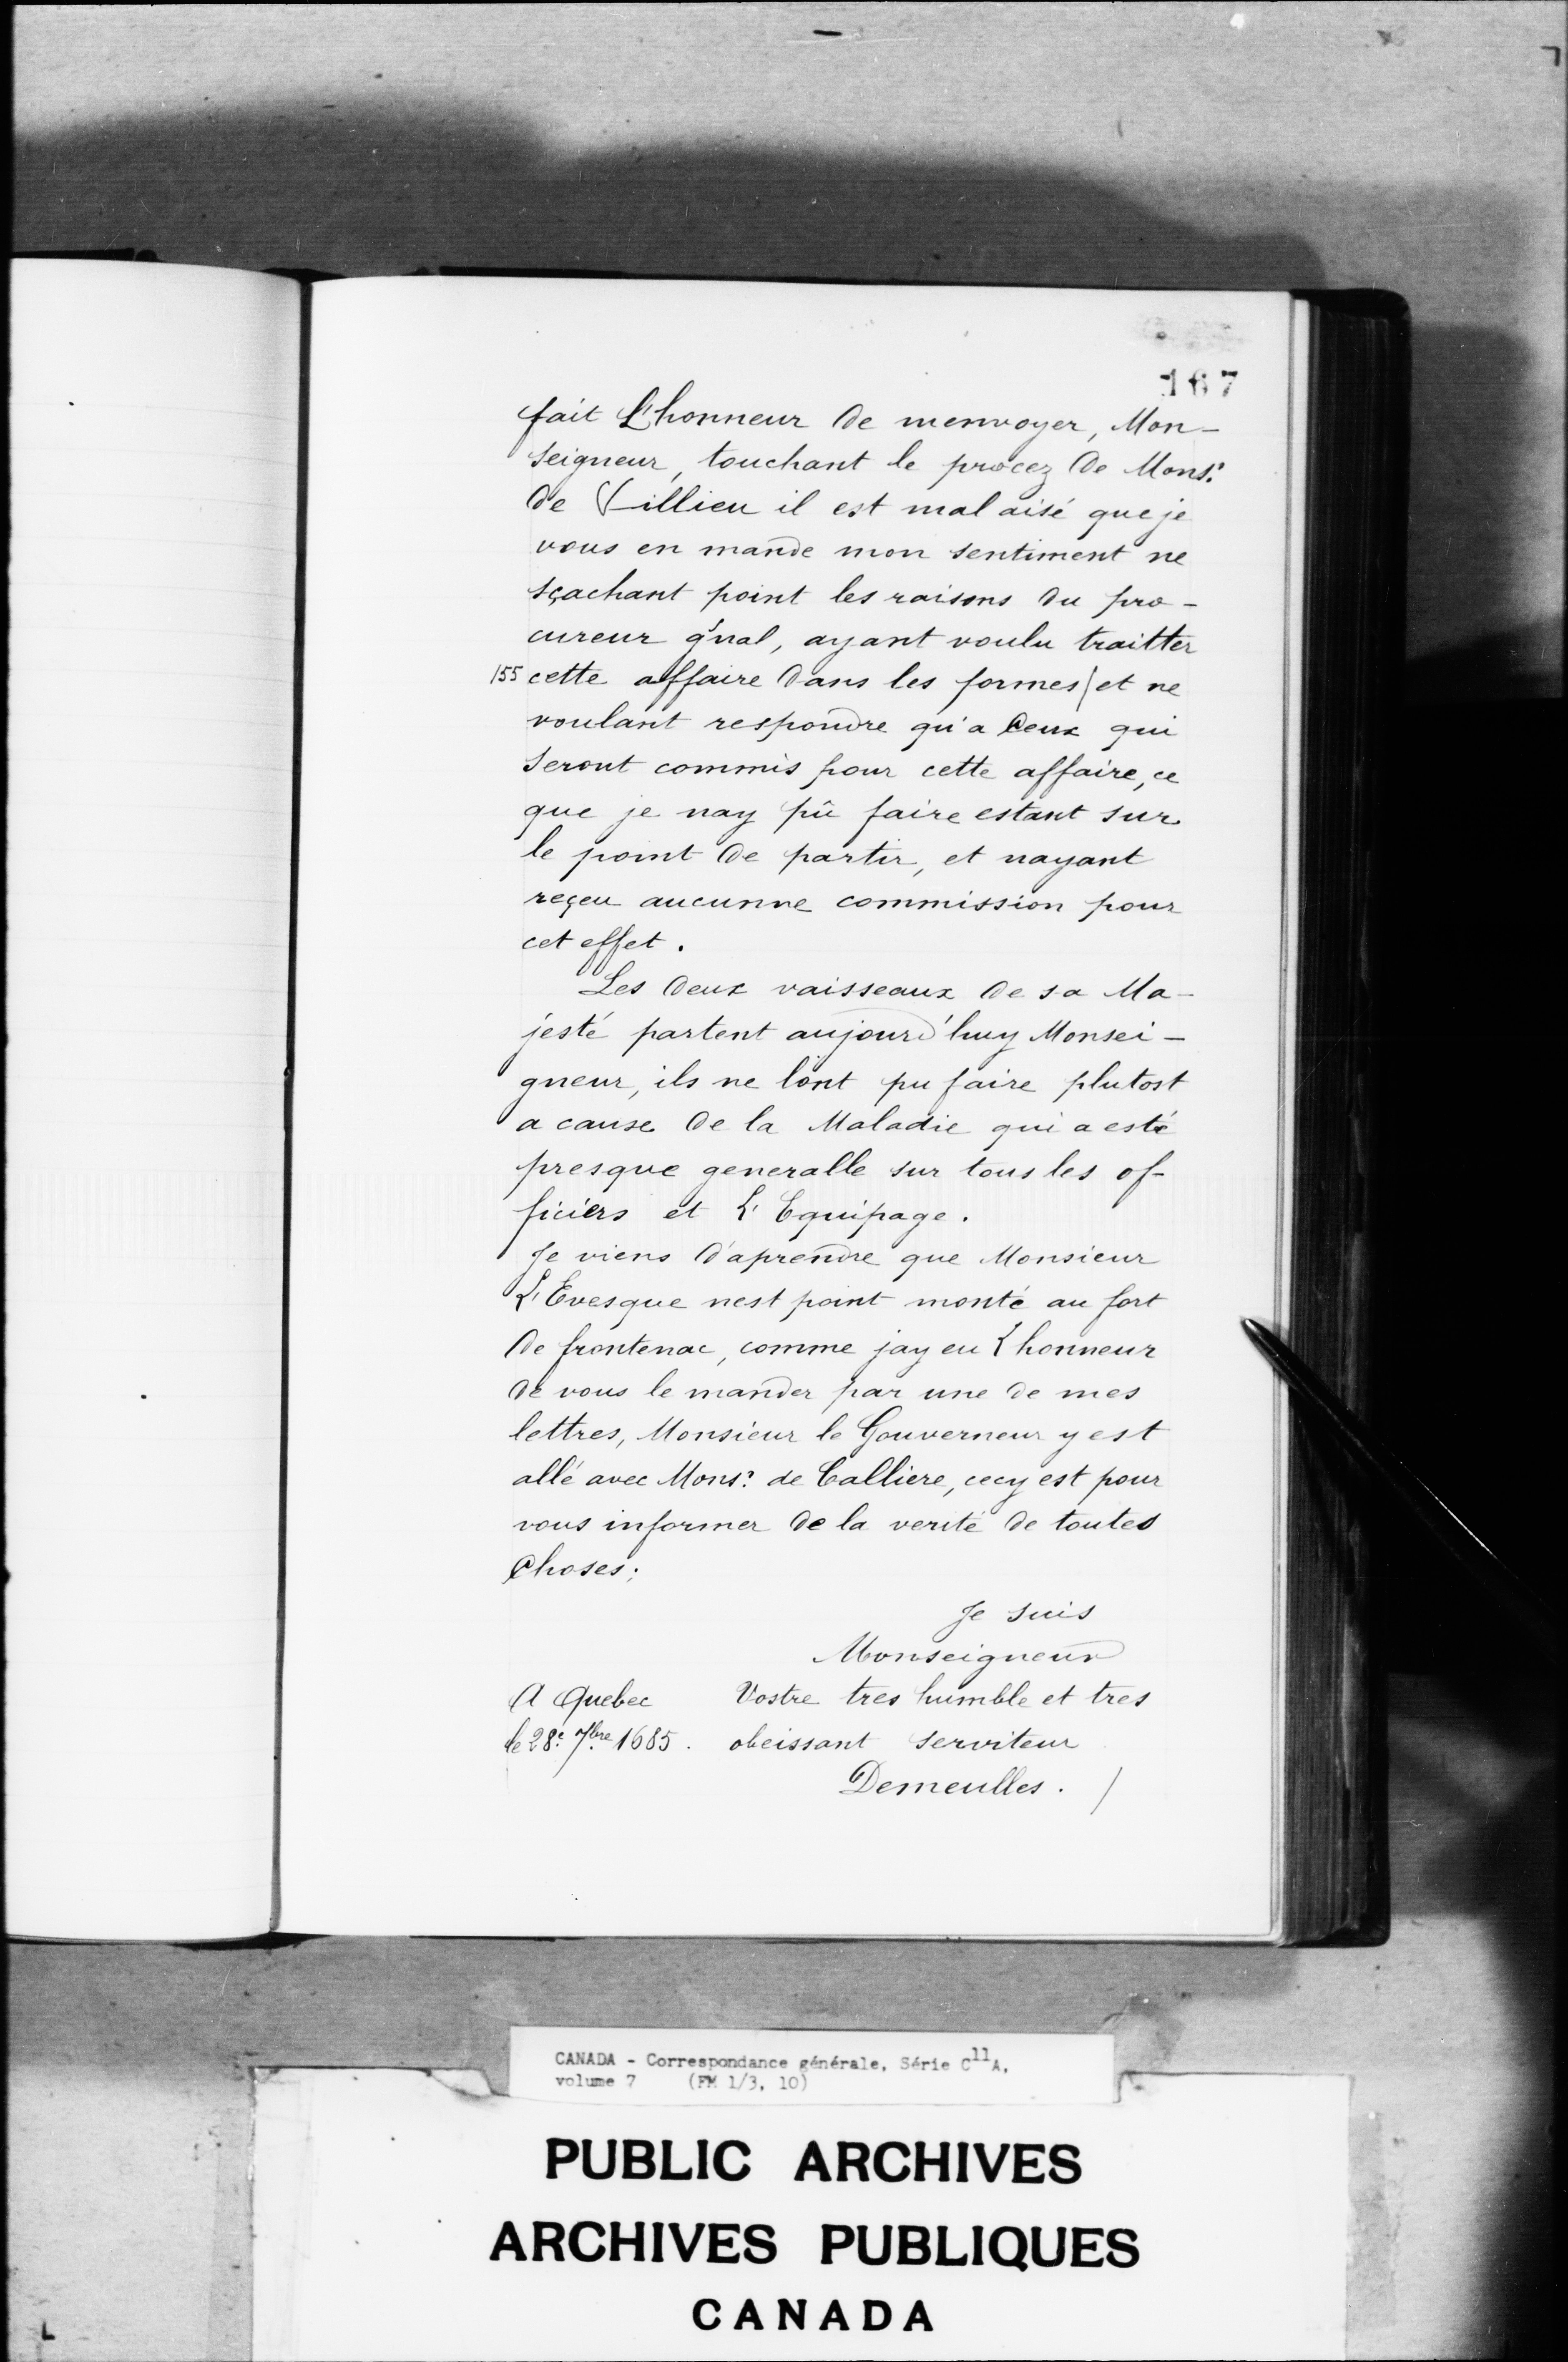 167
fait L'honneur de menvoyer, Mon-
seigneur, touchant le procez de Mons.r
de Villieu il est mal aisé que je
vous en mande mon sentiment ne
sçachant point les raisons du pro-
cureur g'nal, ayant voulu traitter
155 cette affaire dans les formes / et ne
voulant respondre qu'a Ceux qui
seront commis pour cette affaire, ce
que je nay pû faire estant sur
le point de partir, et nayant
reçeu aucunne commission pour
cet effet.
Les deux vaisseaux de sa Ma-
jesté partent aujourd'huy Monsei-
gneur, ils ne lont pu faire plutost
a cause de la Maladie qui a esté
presque generalle sur tous les of-
ficiers et L'Equipage.
Je viens d'aprendre que Monsieur
L'Evesque nest point monté au fort
de frontenac, comme jay eu Lhonneur
de vous le mander par une de mes
lettres, Monsieur le Gouverneur y est
allé avec Mons.r de Calliere, cecy est pour
vous informer de la verité de toutes
Choses;
Je suis
Monseigneur
A Quebec Vostre tres humble et tres
le 28.e 7bre 1685. obeissant serviteur
Demeulles. /
CANADA - Correspondance générale, Série C11A,
volume 7 (FM 1/3, 10)
PUBLIC ARCHIVES
ARCHIVES PUBLIQUES
CANADA